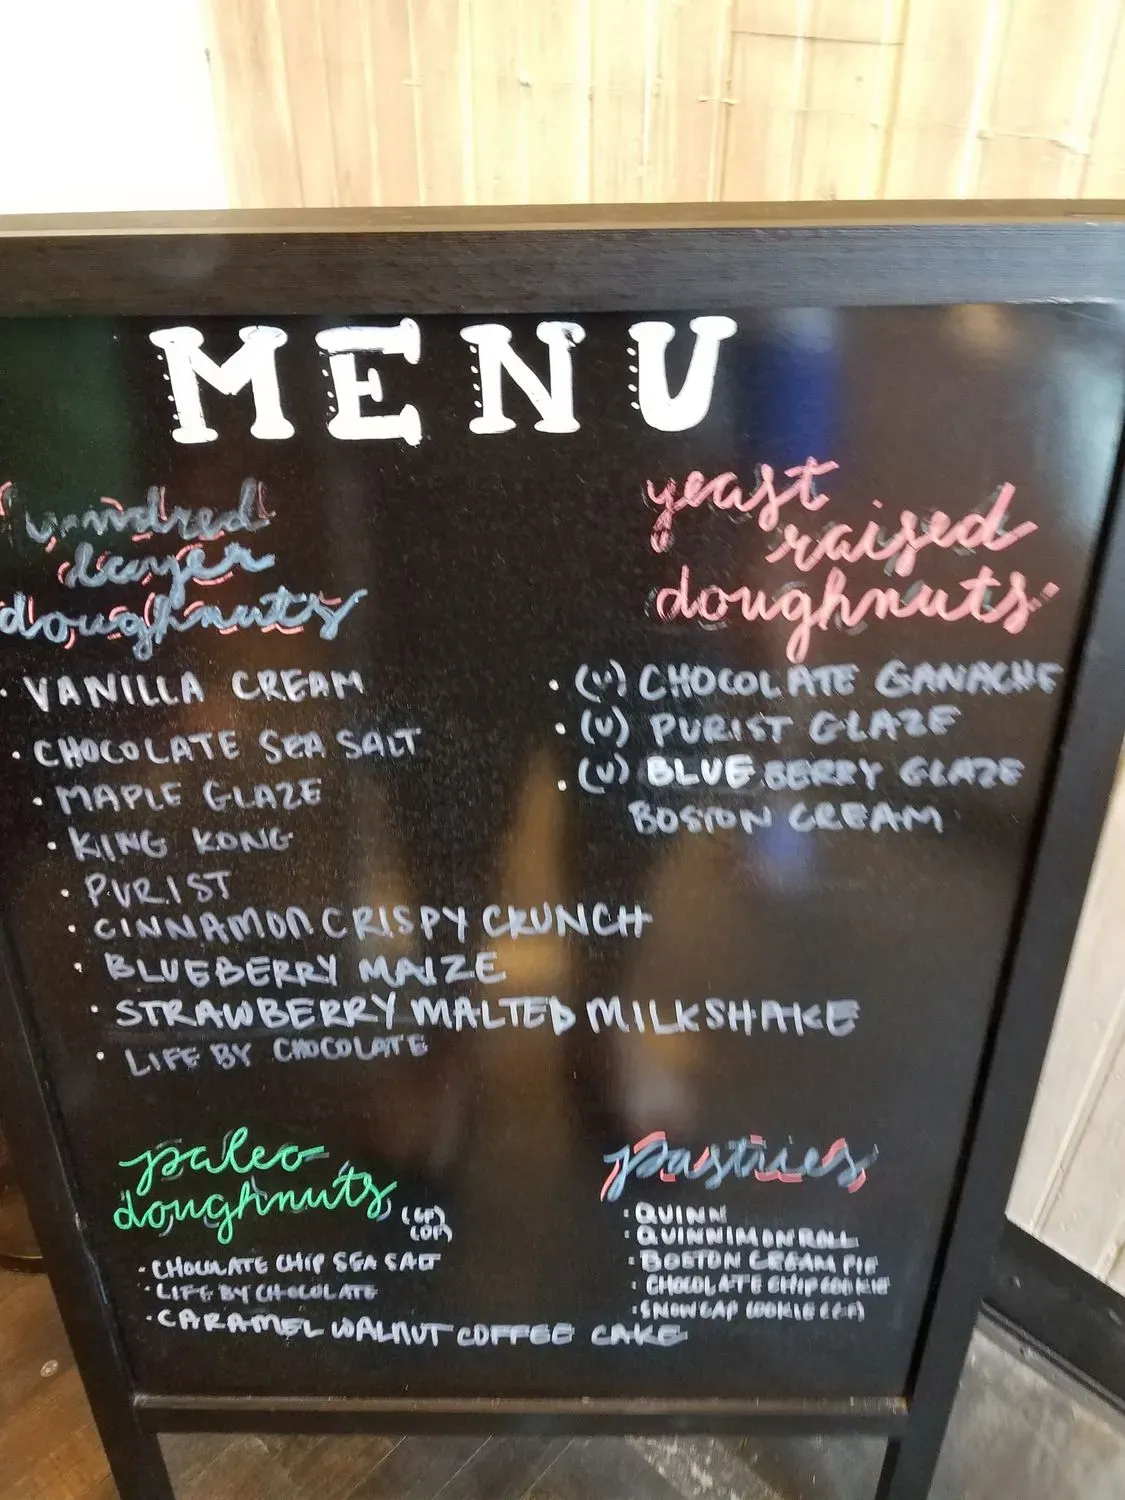 MENU
hundred
layer
doughnuts
· VANILLA CREAM
· CHOCOLATE SEA SALT
· MAPLE GLAZE
· KING KONG
· PURIST
· CINNAMON CRISPY CRUNCH
· BLUEBERRY MAIZE
· STRAWBERRY MALTED MILKSHAKE
· LIFE BY CHOCOLATE
yeast
raised
doughnuts
· (V) CHOCOLATE GANACHE
· (V) PURIST GLAZE
· (V) BLUEBERRY GLAZE
BOSTON CREAM
paleo
doughnuts (GF)
(DF)
· CHOCOLATE CHIP SEA SALT
· LIFE BY CHOCOLATE
· CARAMEL WALNUT COFFEE CAKE
pastries
· QUINN
· QUINNIMONROLL
· BOSTON CREAM PIE
· CHOCOLATE CHIP COOKIE
· SNOWCAP COOKIE (GF)